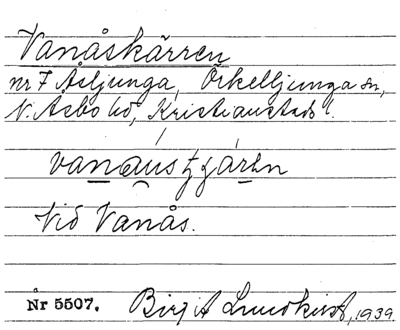 Vanåskärren
nr 7 Åsljunga, Örkelljunga sn,
N. Åsbo hd, Kristianstads l.
vanáustʒárən
Vid Vanås.
Nr 5507. Birgit Lundkvist, 1939.